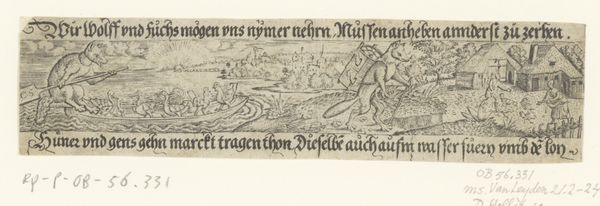 Wir Wolff vnd fuchs mögen vns nÿmer nehrn Müssen anheben annderst zü zerhen.
Hüner vnd gens gehn marckt tragen thon Dieselbe auch aufm wasser füern vmb dē lon
RP-P-OB-56.331
OB 56.331
ms. Van Leyden 21.2-24